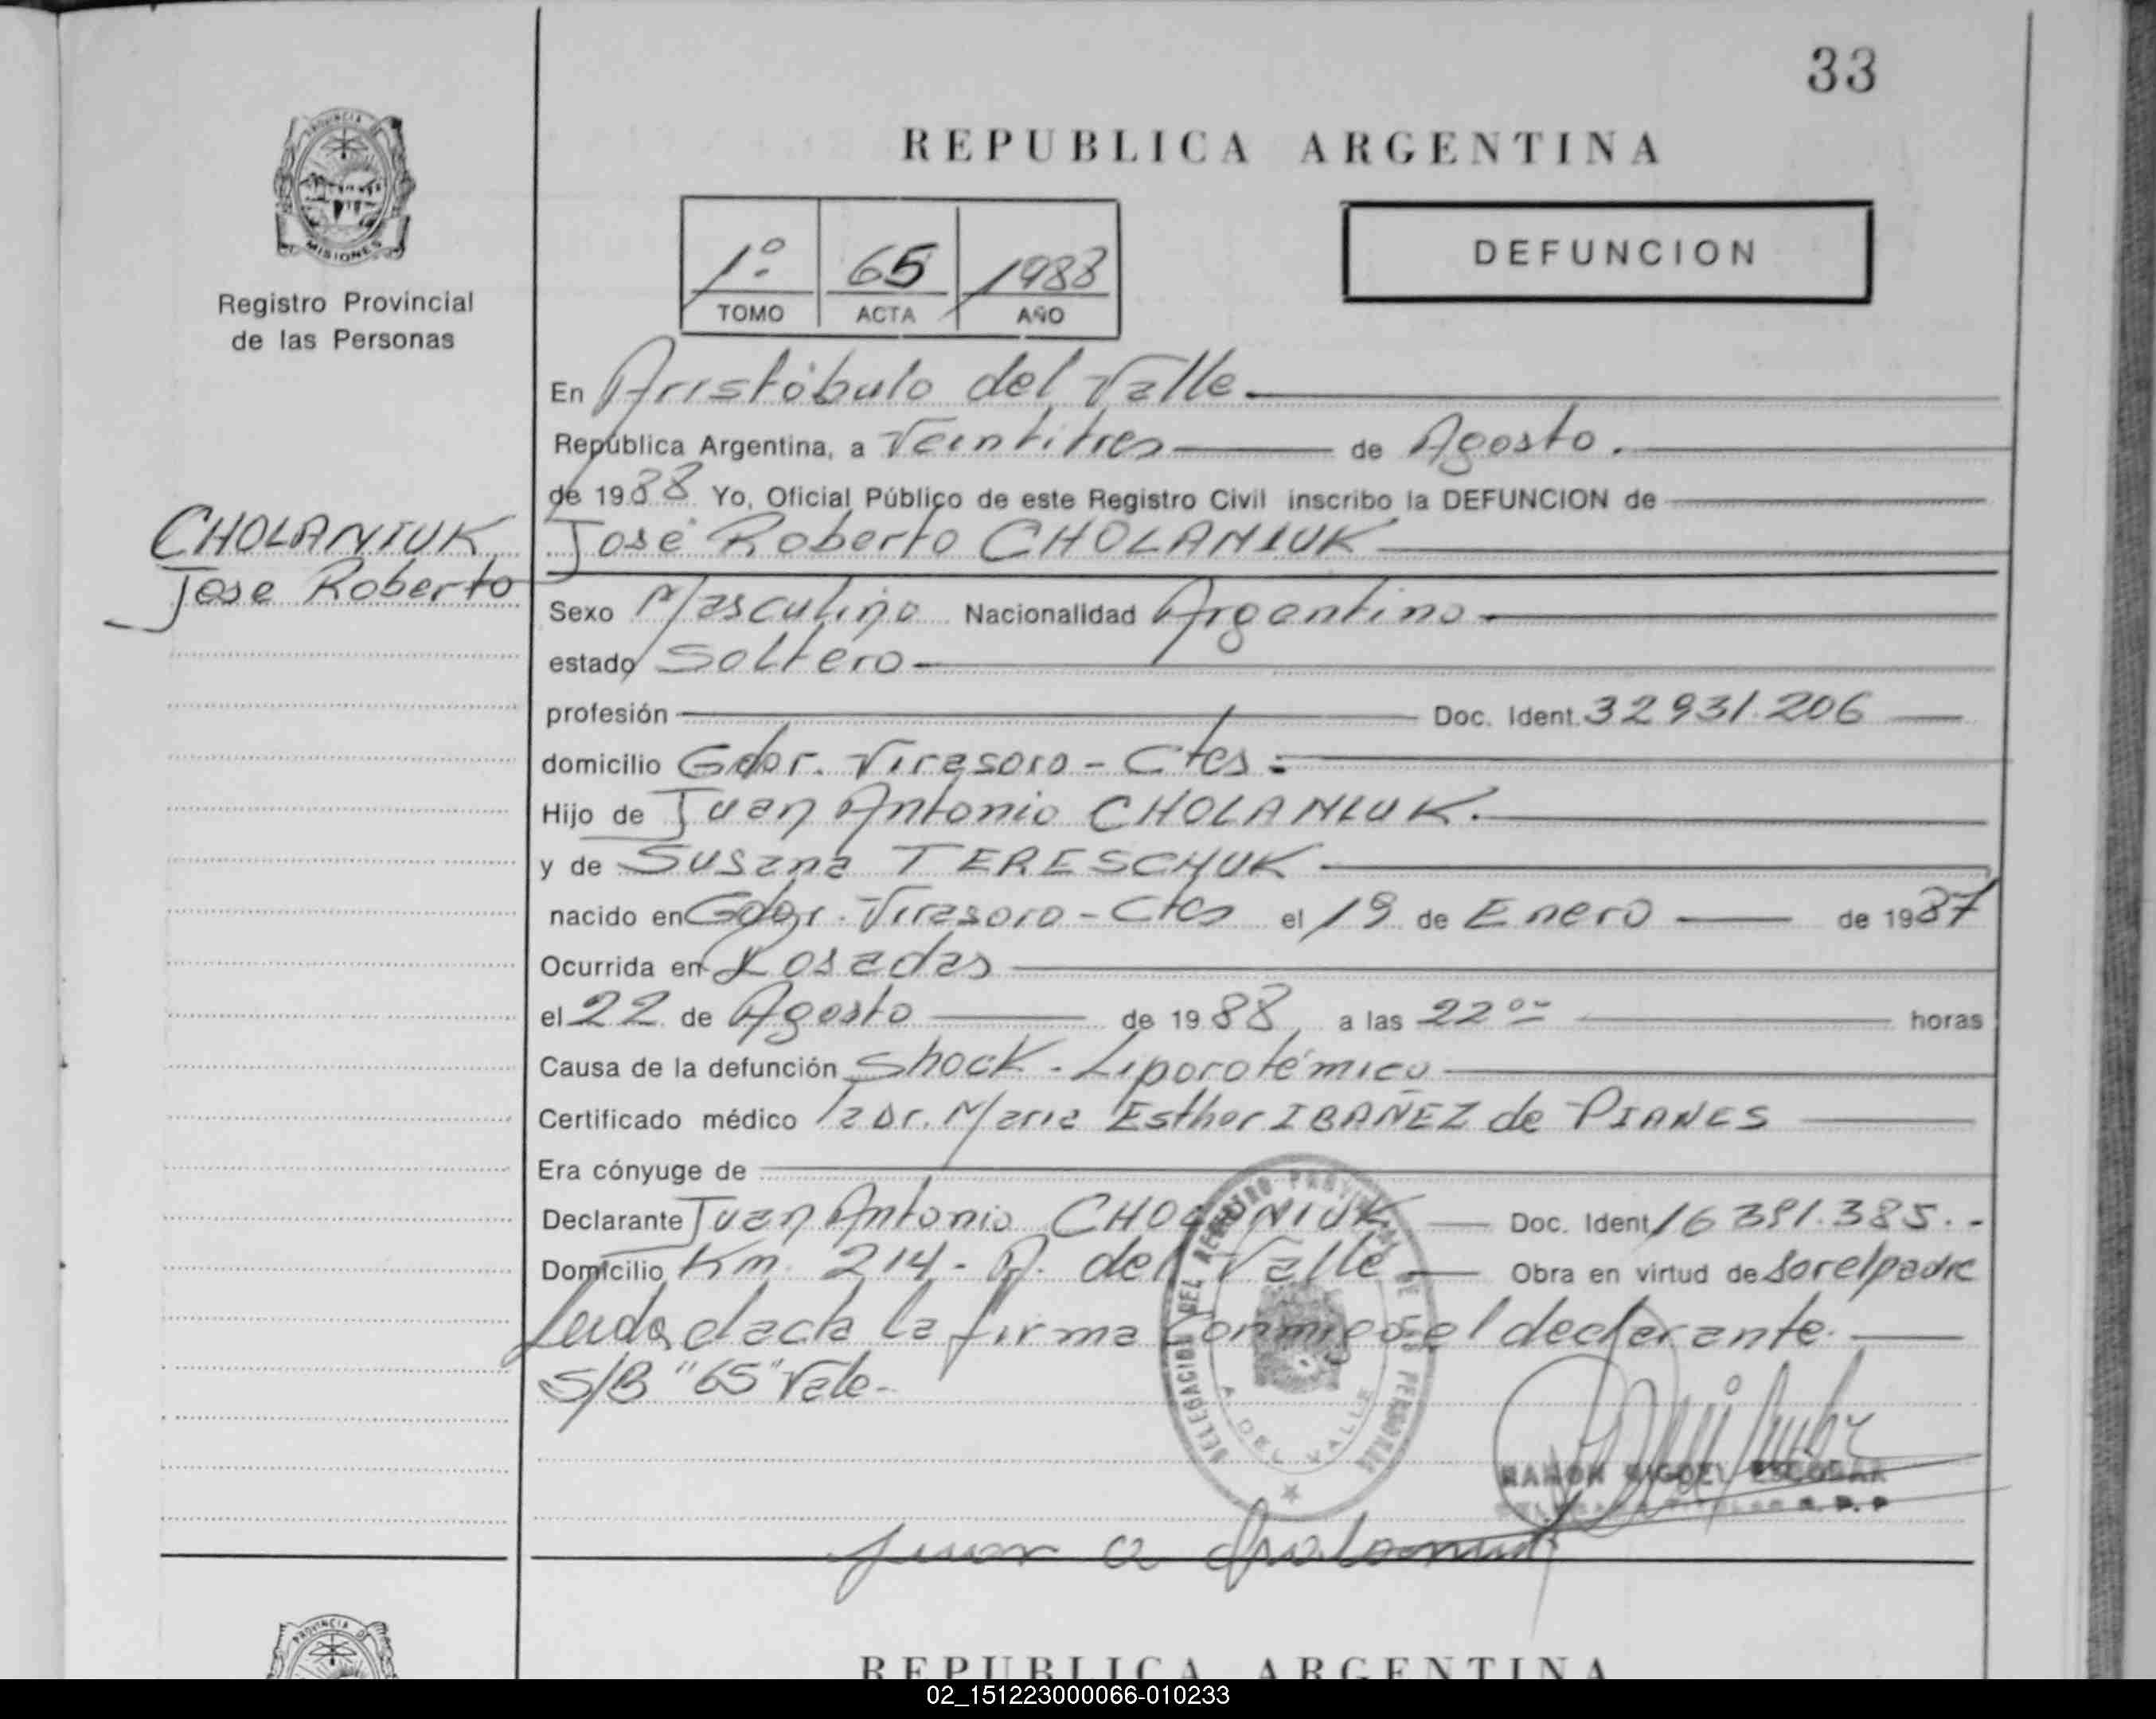 33
REPUBLICA ARGENTINA
PROVINCIA DE
MISIONES
Registro Provincial
de las Personas
1º 65 1988
TOMO ACTA AÑO
DEFUNCION
En Aristóbulo del Valle
República Argentina, a Veintitres de Agosto.
de 1988 Yo, Oficial Público de este Registro Civil inscribo la DEFUNCION de
CHOLANIUK
Jose Roberto
José Roberto CHOLANIUK
Sexo Masculino Nacionalidad Argentino
estado Soltero
profesión Doc. Ident. 32931.206
domicilio Gdor. Virasoro - Ctes
Hijo de Juan Antonio CHOLANIUK.
y de Susana TERESCHUK
nacido en Gdor. Virasoro - Ctes el 19 de Enero de 1987
Ocurrida en Posadas
el 22 de Agosto de 1988, a las 22 horas
Causa de la defunción Shock - Liporotémico
Certificado médico la Dr. Maria Esther IBAÑEZ de PIANES
Era cónyuge de
Declarante Juan Antonio CHOLANIUK Doc. Ident 16391.385.-
Domicilio Km. 214 - A. del Valle Obra en virtud de sor el padre
Leida el acta la firma Conmigo el declarante.
S/B "65" Vale-
DELEGACION DEL REGISTRO PROVINCIAL DE LAS PERSONAS
A. DEL VALLE
RAMON MIGUEL ESCOBAR
R. P. P
PROVINCIA DE
REPUBLICA ARGENTINA
02_151223000066-010233